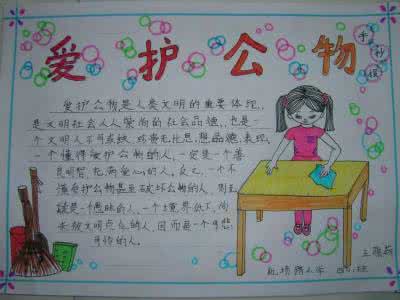 爱护公物
手抄报
爱护公物是人类文明的重要体现,
是文明社会人人崇尚的社会品德,也是一
个文明人不可或缺
思想品德,表现。
一个懂得爱护公物的人,一定是一个善
良明智,充满爱心的人,反之,一个不
懂爱护公物甚至破坏公物的人,则无
疑是一个愚昧的人,一个境界低下,尚
未被文明点化的人,因而是一个可悲
可怜的人。
机场路小学